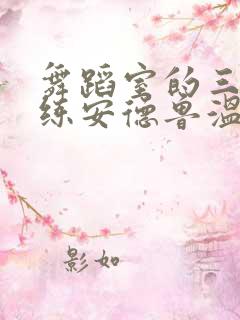 舞蹈室的三
练安德鲁温
影如